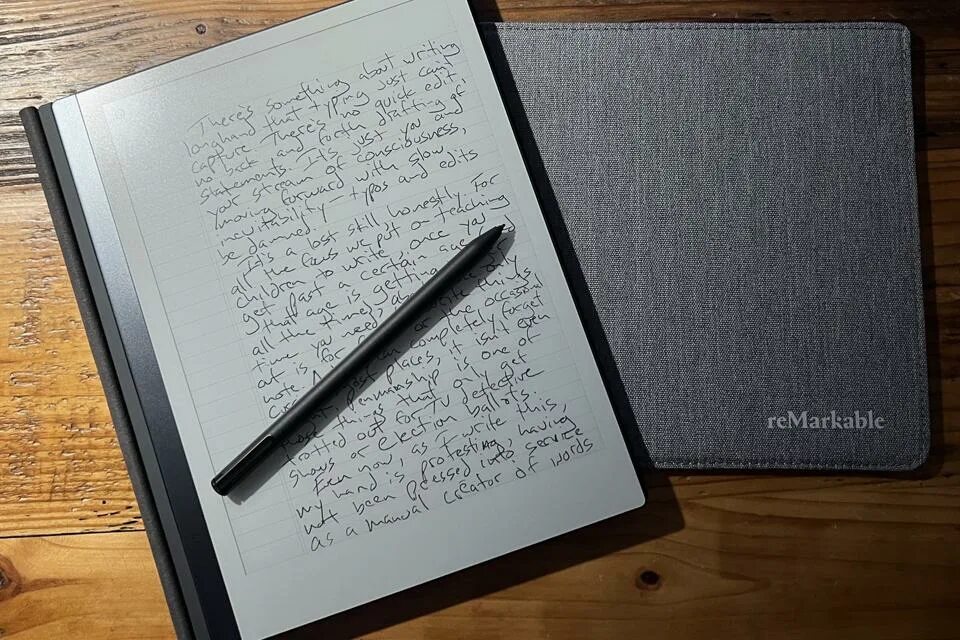 There's something about writing
longhand that typing just can't
capture. There's no quick edit,
no back and forth drafting of
statements. It's just you and
your stream of consciousness,
moving forward with slow
inevitability — typos and edits
be damned.
It's a lost still, honestly. For
all the focus we put on teaching
children to write once you
get past a certain age
that age is getting
all the time), write things
time you need only
out is for or the occasional
note. completely forget
most places, it isn't even
penmanship is one of
those things that only get
trotted out for TV detective
shows or election ballots.
Even now, as I write this,
my hand is protesting, having
not been pressed into service
as a manual creator of words
reMarkable